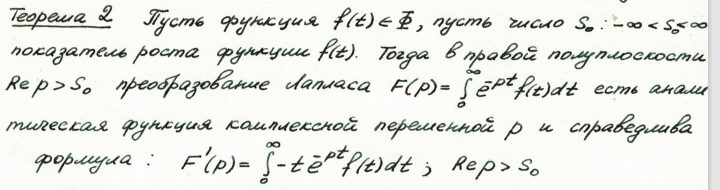 Теорема 2 Пусть функция f(t) ∈ Φ, пусть число S₀: -∞ < S₀ < ∞
показатель роста функции f(t). Тогда в правой полуплоскости
Re p > S₀ преобразование Лапласа F(p) = ∫₀^∞ e^{-pt} f(t)dt есть анали
тическая функция комплексной переменной p и справедлива
формула: F'(p) = ∫₀^∞ -t e^{-pt} f(t)dt ; Re p > S₀